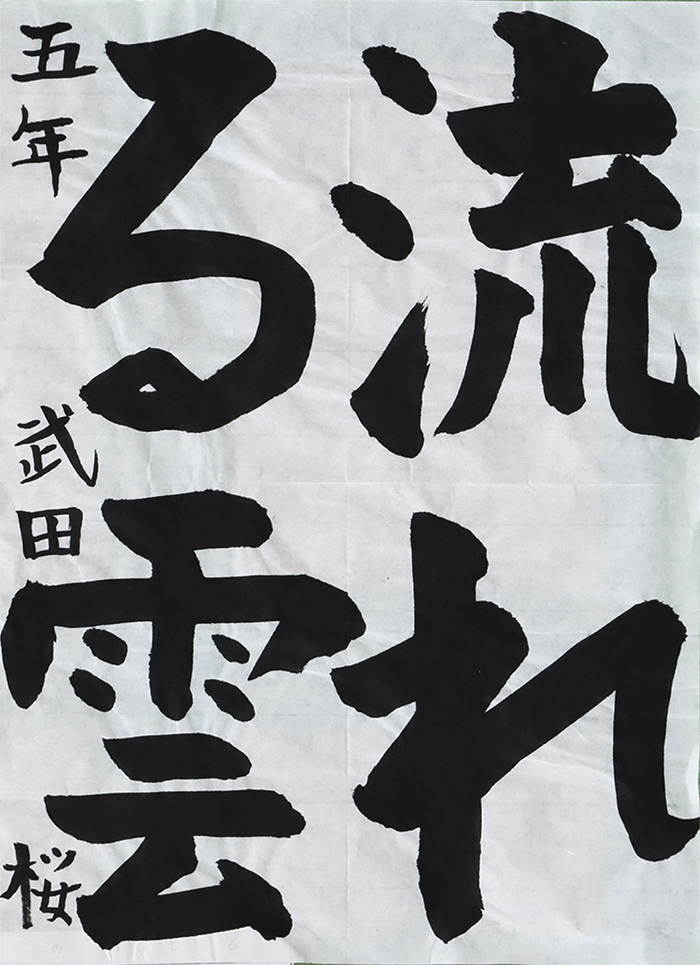 流れ
る雲
五年 武田 桜